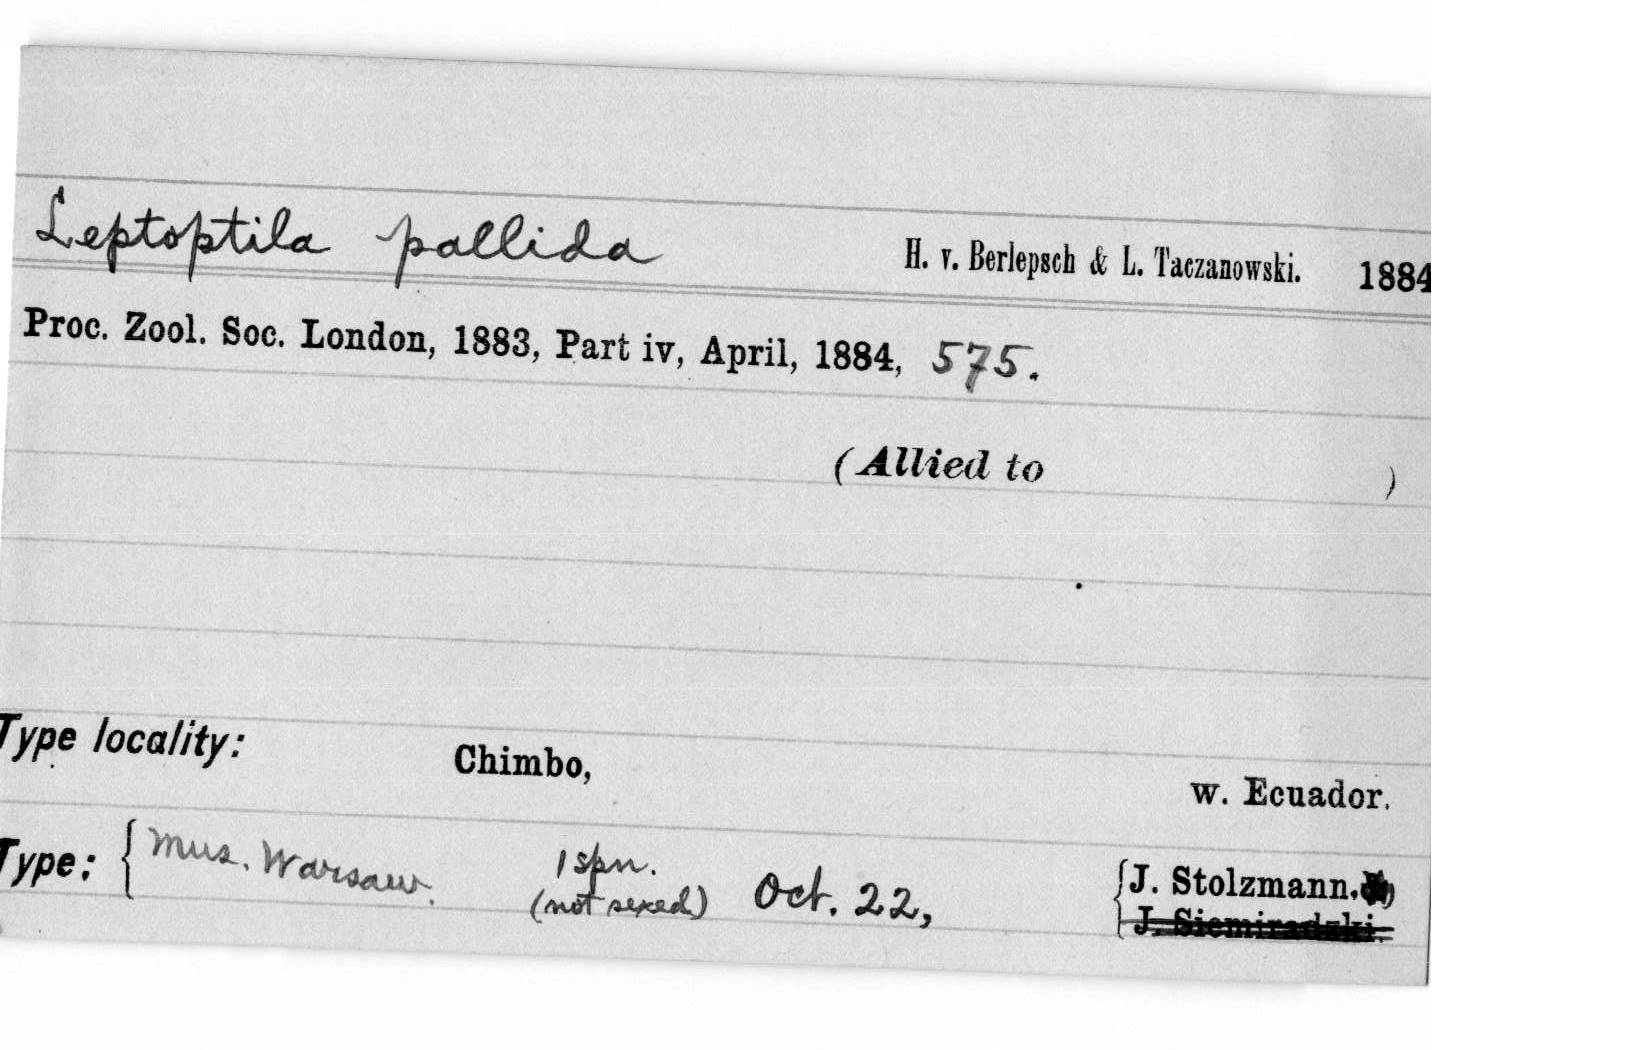 Leptoptila pallida H. v. Berlepsch & L. Taczanowski. 1884
Proc. Zool. Soc. London, 1883, Part iv, April, 1884, 575.
(Allied to )
Type locality: Chimbo, w. Ecuador.
Type: { Mus. Warsaw. 1 spn. { J. Stolzmann.
(not sexed) Oct. 22, J. Siemiradzki.